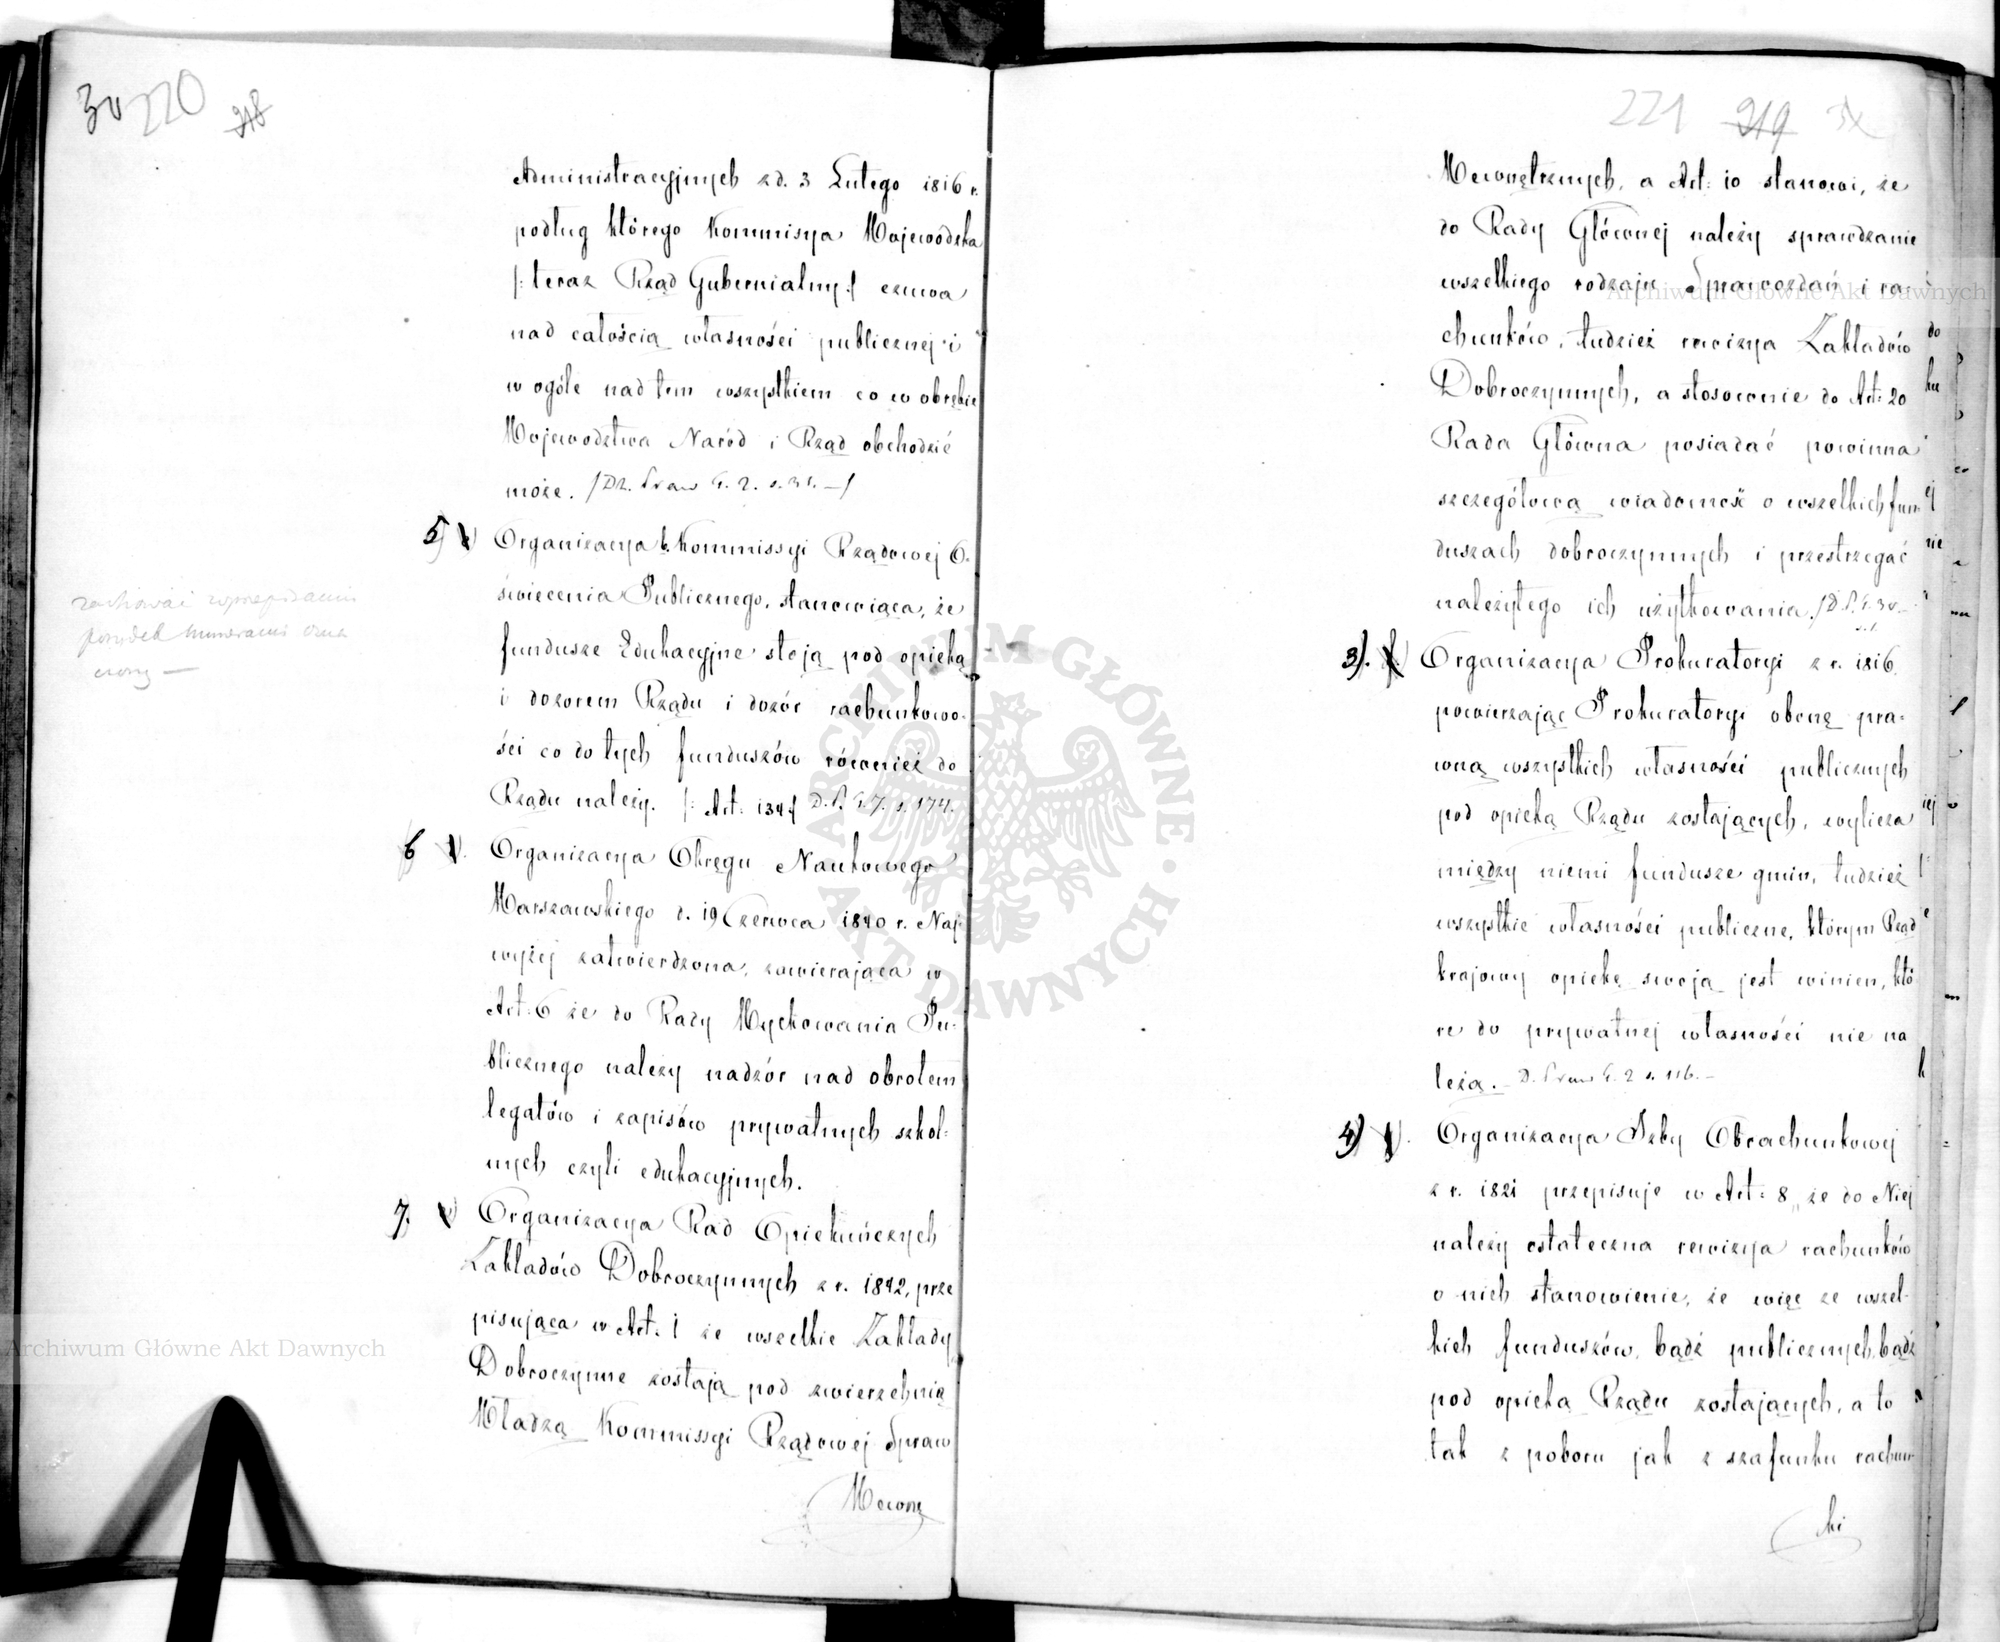 30 220 218
Administracyjnych z d. 3 Lutego 1816 r.
podług którego Kommisya Wojewódzka
/: teraz Rząd Gubernialny :/ czuwa
nad całością własności publicznej i
w ogóle nad tem wszystkiem co w obrębie
Województwa Naród i Rząd obchodzić
może. /Dz. Praw T. 2. s. 31. —/
5) Organizacya b. Kommissyi Rządowej O-
świecenia Publicznego, stanowiąca, że
fundusze Edukacyjne stoją pod opieką
i dozorem Rządu i dozór rachunkowo-
ści co do tych funduszów również do
Rządu należy. /: Art: 134 :/ D. P. T. 7. s. 174.
zachować
porządek
6 Organizacya Okręgu Naukowego
Warszawskiego d. 19 Czerwca 1840 r. Naj-
wyżej zatwierdzona, zawierająca w
Art: 6 że do Rady Wychowania Pu-
blicznego należy nadzór nad obrotem
legatów i zapisów prywatnych szkol-
nych czyli edukacyjnych.
7. Organizacya Rad Opiekuńczych
Zakładów Dobroczynnych z r. 1842, prze
pisująca w Art. 1 że wszelkie Zakłady
Dobroczynne zostają pod zwierzchnią
Władzą Kommissyi Rządowej Spraw
Wewnę
221 219
Wewnętrznych, a Art: 10 stanowi, że
do Rady Głównej należy sprawdzanie
wszelkiego rodzaju Sprawozdań i ra-
chunków, tudzież rewizya Zakładów
Dobroczynnych, a stosownie do Art: 20
Rada Główna posiadać powinna
szczegółową wiadomość o wszelkich fun
duszach dobroczynnych i przestrzegać
należytego ich użytkowania. /D. P. T. 30. —
3). Organizacya Prokuratoryi z r. 1816.
powierzając Prokuratoryi obronę pra-
wną wszystkich własności publicznych
pod opieką Rządu zostających, wylicza
między niemi fundusze gmin, tudzież
wszystkie własności publiczne, którym Rząd
krajowy opiekę swoją jest winien, któ
re do prywatnej własności nie na
leżą. — D. Praw T. 2 s. 116. —
4) Organizacya Izby Obrachunkowej
z r. 1821 przepisuje w Art: 8, że do Niej
należy ostateczna rewizya rachunków
o nich stanowienie, że więc ze wszel-
kich funduszów, bądź publicznych, bądź
pod opieką Rządu zostających, a to
tak z poboru jak z szafunku rachun
ki
Archiwum Główne Akt Dawnych
Archiwum Główne Akt Dawnych
ARCHIWUM GŁÓWNE AKT DAWNYCH